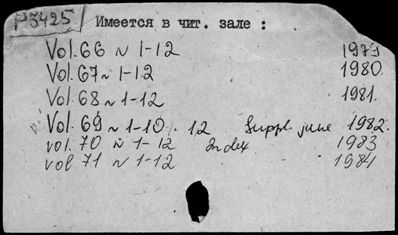 P5425 Имеется в чит. зале :
Vol. 66 N 1-12 1979
Vol. 67 N 1-12 1980.
Vol. 68 N 1-12 1981.
Vol. 69 N 1-10. 12 Suppl june 1982.
vol. 70 N 1-12 Index 1983
vol 71 N 1-12 1984